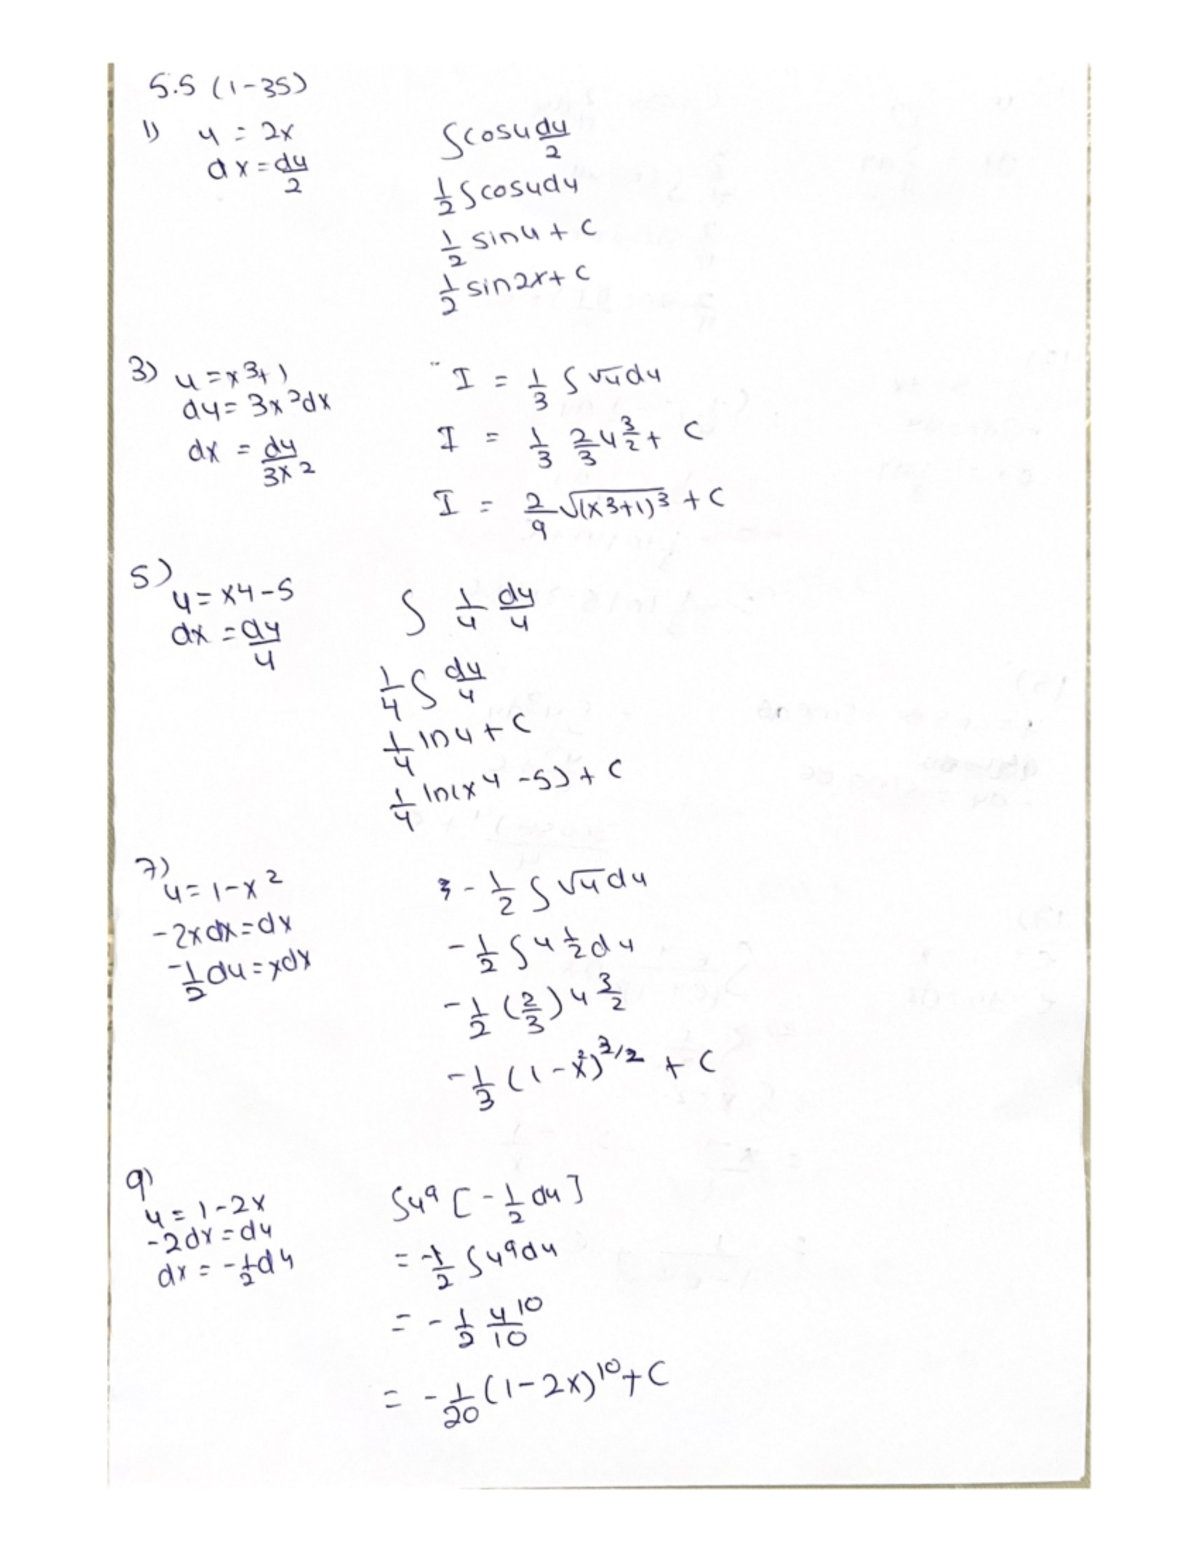 5.5 (1-35)
1) u = 2x
dx = du/2
∫cosu du/2
1/2 ∫cosudu
1/2 sinu + C
1/2 sin2x + C
3) u = x³+1
du = 3x²dx
dx = du/3x²
I = 1/3 ∫ √u du
I = 1/3 2/3 u^3/2 + C
I = 2/9 √(x³+1)³ + C
5)
u = x4-5
dx = du/4
∫ 1/u du/4
1/4 ∫ du/u
1/4 ln u + C
1/4 ln(x⁴-5) + C
7)
u = 1-x²
-2xdx = dx
-1/2 du = xdx
- 1/2 ∫ √u du
- 1/2 ∫ u^1/2 du
- 1/2 (2/3) u^3/2
- 1/3 (1-x²)^3/2 + C
9)
u = 1-2x
-2dx = du
dx = -1/2 du
∫u⁹ [-1/2 du]
= -1/2 ∫u⁹du
= -1/2 u¹⁰/10
= -1/20 (1-2x)¹⁰ + C